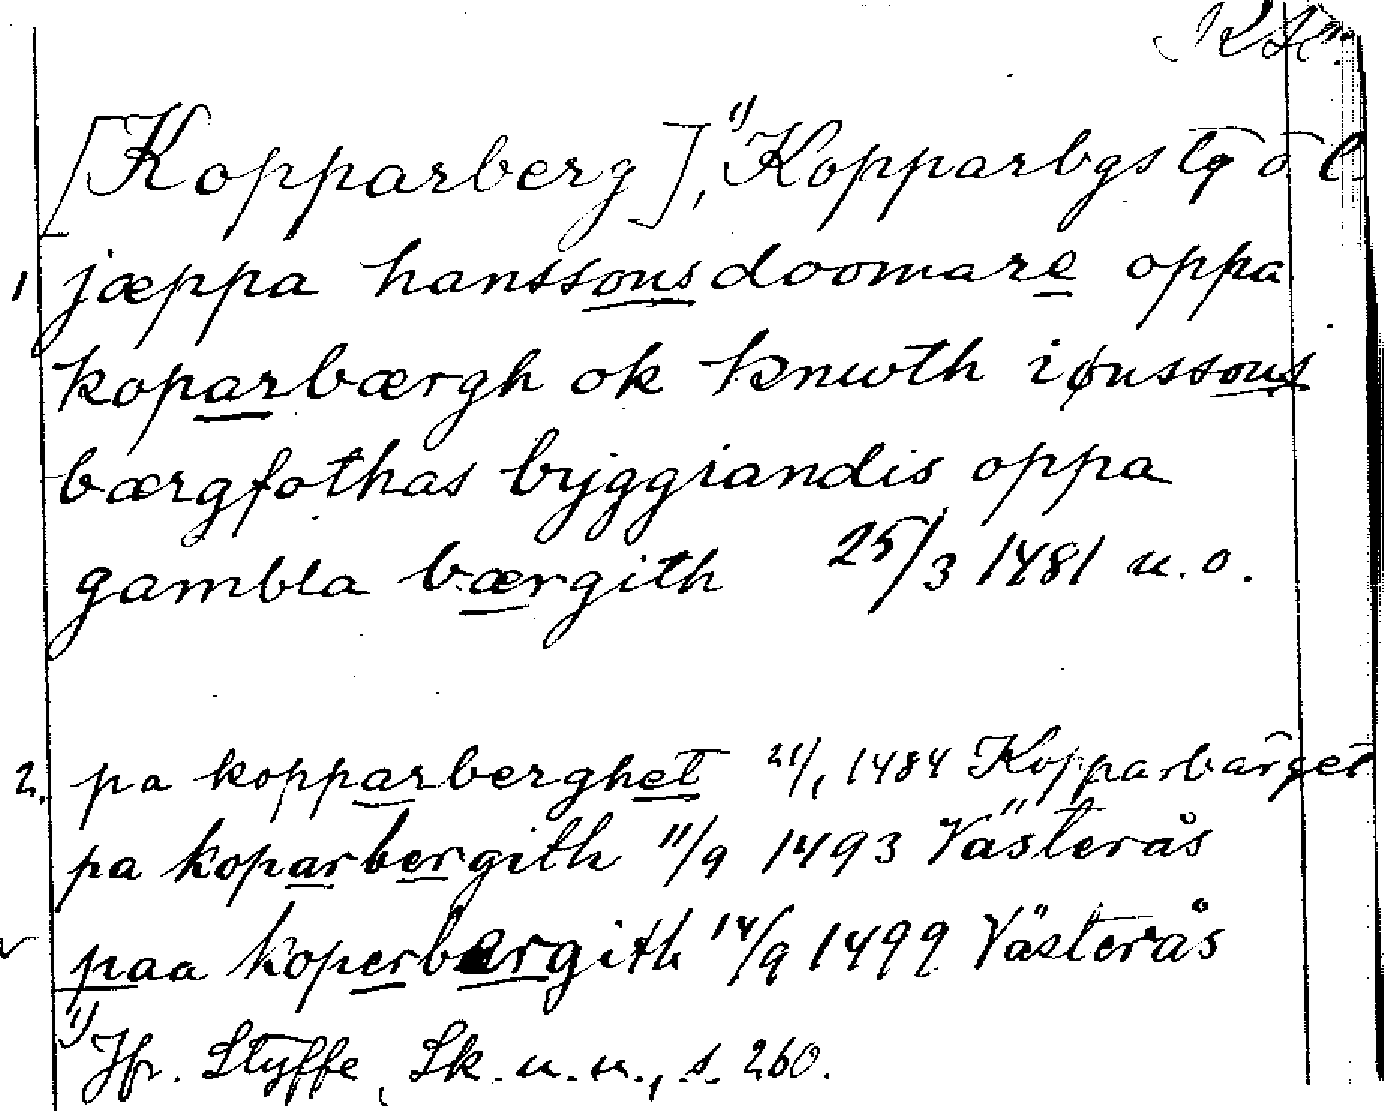 [Kopparberg],¹⁾ Kopparbgs lg o l
1, jæppa hanssons doomare oppa
koparbærgh ok knwth iønssons
bærgfothas byggiandis oppa
gambla bærgith 25/3 1481 u.o.
2. pa kopparberghet 21/1 1484 Kopparbärget
pa koparbergith 11/9 1493 Västerås
paa koperbergith 14/9 1499 Västerås
¹⁾ Jfr. Styffe, Sk. u. u., s. 260.